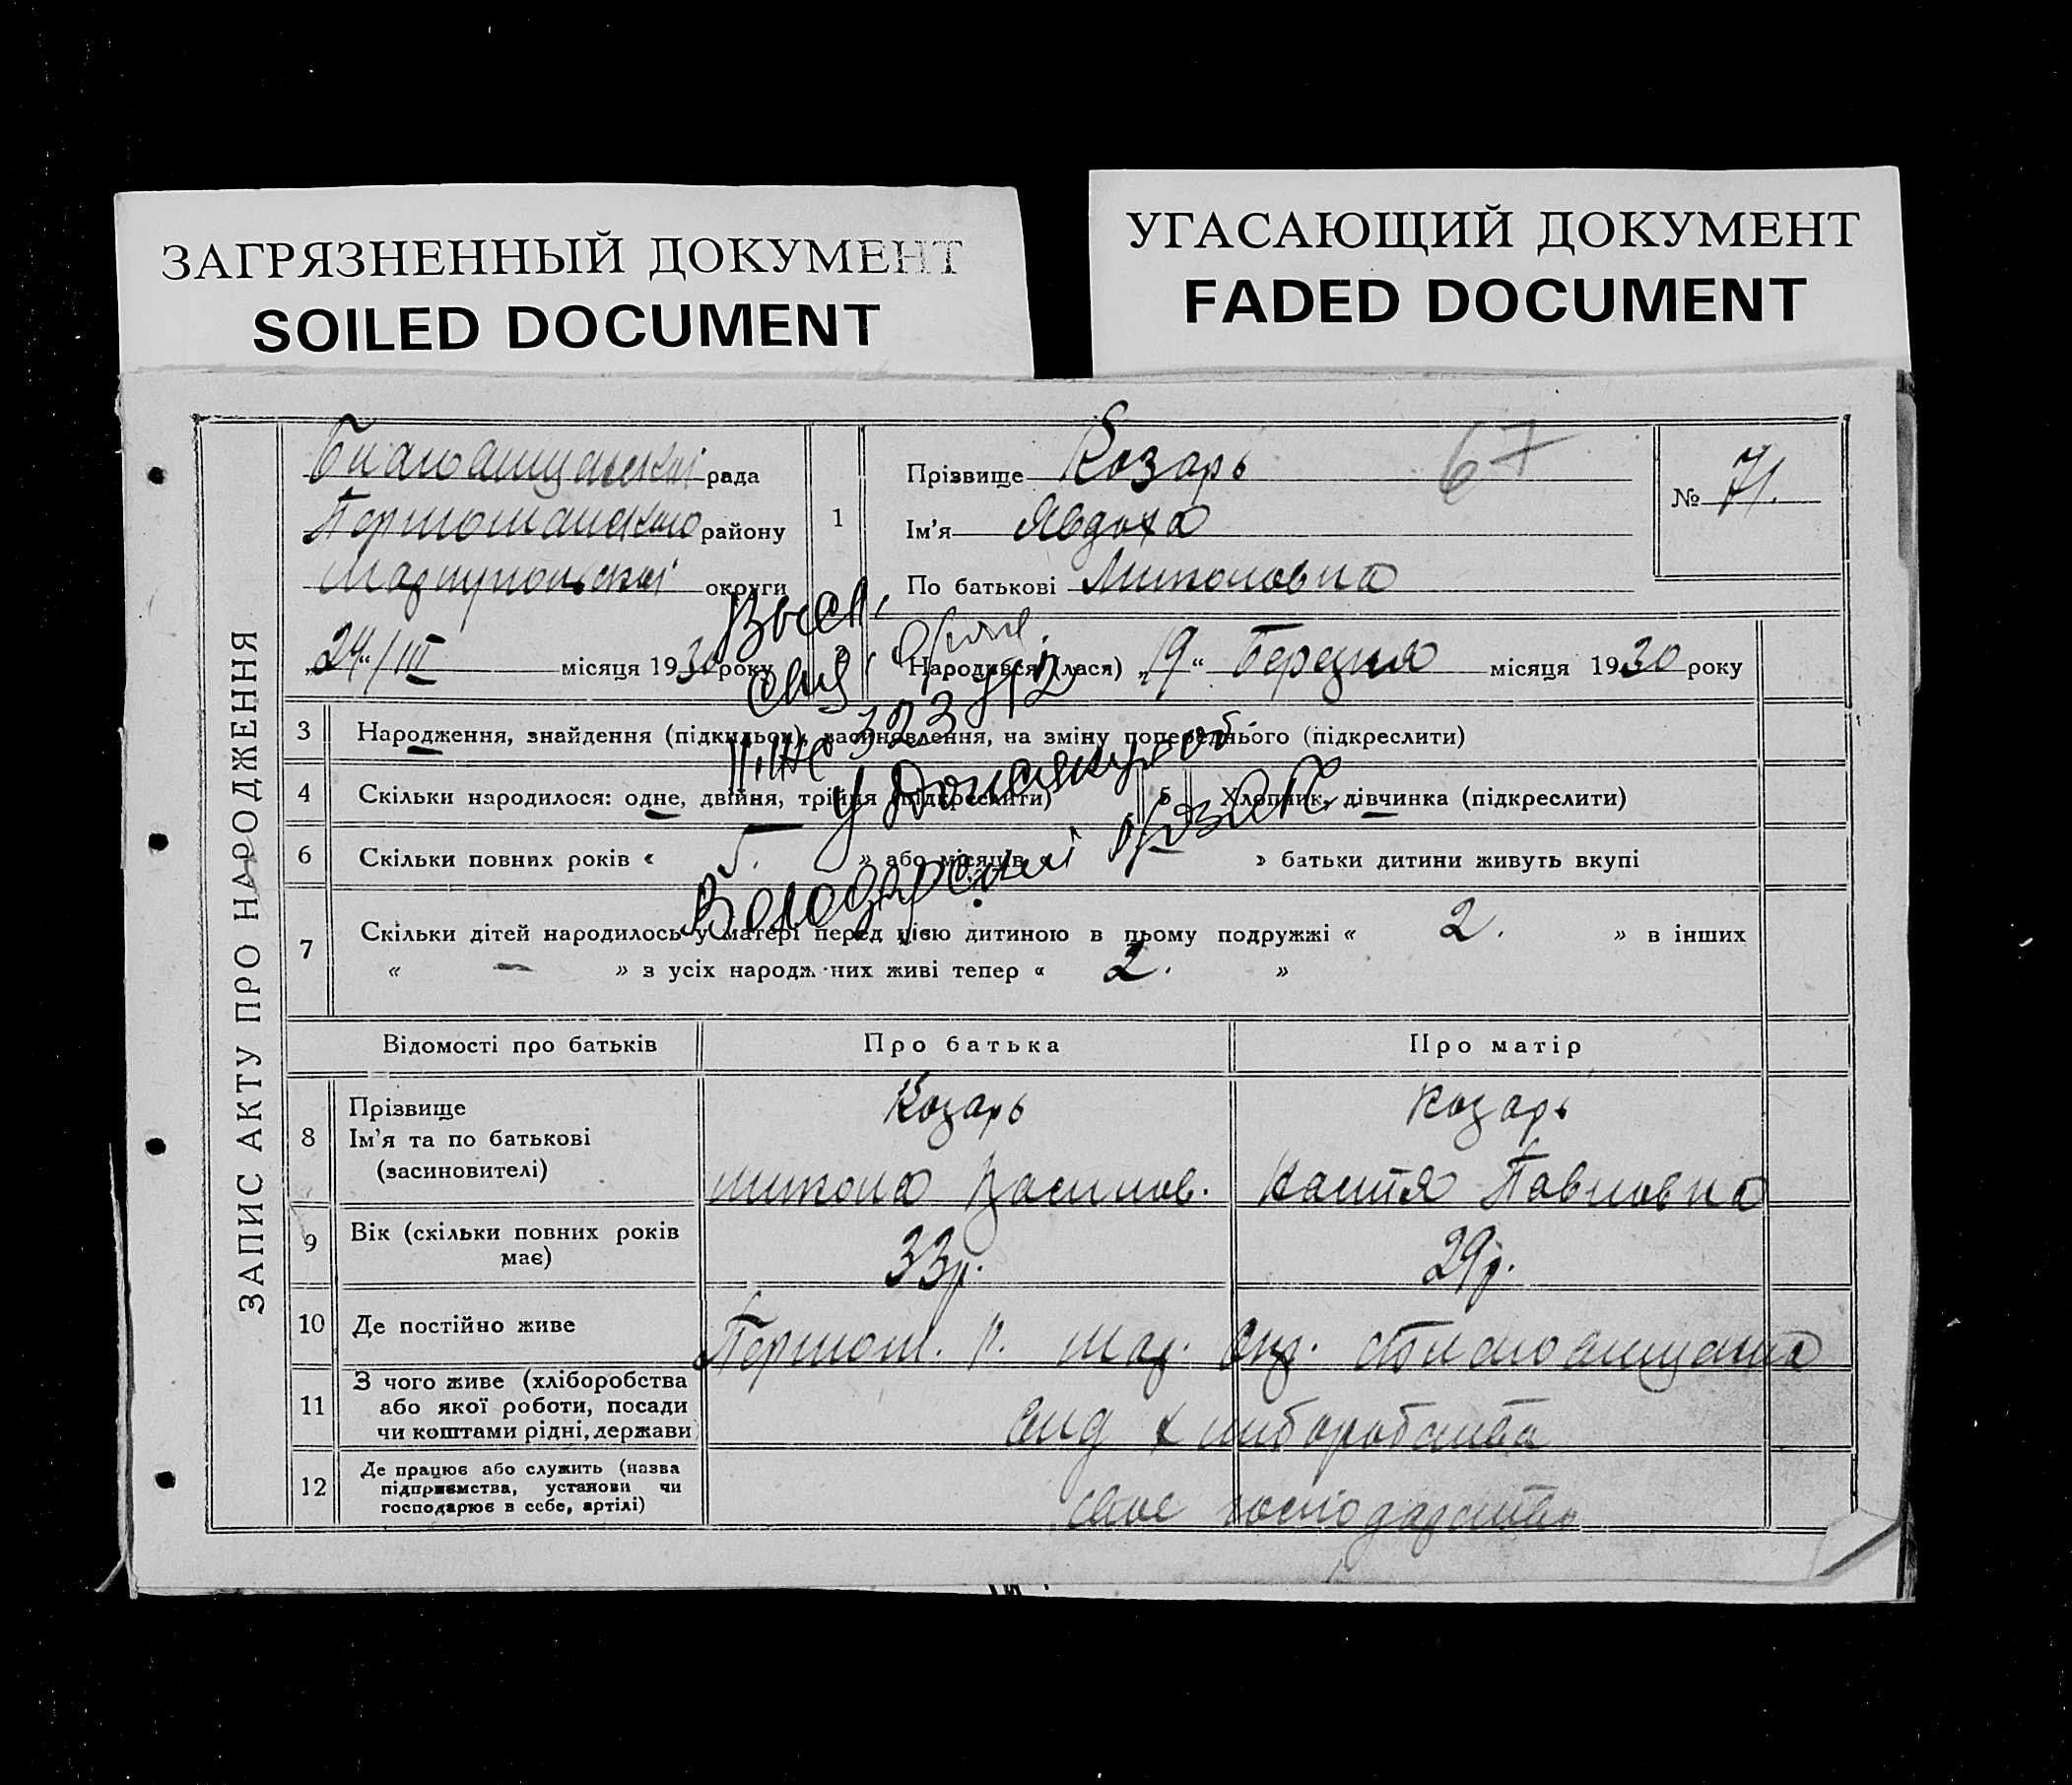 ЗАГРЯЗНЕННЫЙ ДОКУМЕНТ
SOILED DOCUMENT
УГАСАЮЩИЙ ДОКУМЕНТ
FADED DOCUMENT
ЗАПИС АКТУ ПРО НАРОДЖЕННЯ
рада
району
Маріупольскої округи
„24“/III місяця 1930 року
1
Прізвище Козарь
Ім'я Явдоха
По батькові
67
№ 71.
2 Народився (лася) „19“ Березня місяця 1930 року
3 Народження, знайдення (підкидьок), засиновлення, на зміну попереднього (підкреслити)
4 Скільки народилося: одне, двійня, трійня (підкреслити) 5 Хлопчик, дівчинка (підкреслити)
6 Скільки повних років « 5. » або місяців « » батьки дитини живуть вкупі
7 Скільки дітей народилось у матері перед цією дитиною в цьому подружжі « 2. » в інших
« — » з усіх народж них живі тепер « 2. »
323
у
Відомості про батьків Про батька Про матір
8 Прізвище
Ім'я та по батькові
(засиновителі)
Козарь Козарь
Василов. Настя Павловна
9 Вік (скільки повних років
має)
33р. 29р.
10 Де постійно живе
р. Мар. Окр.
11 З чого живе (хліборобства
або якої роботи, посади
чи коштами рідні, держави
хліборобства
12 Де працює або служить (назва
підприємства, установи чи
господарює в себе, артілі)
своє господарство